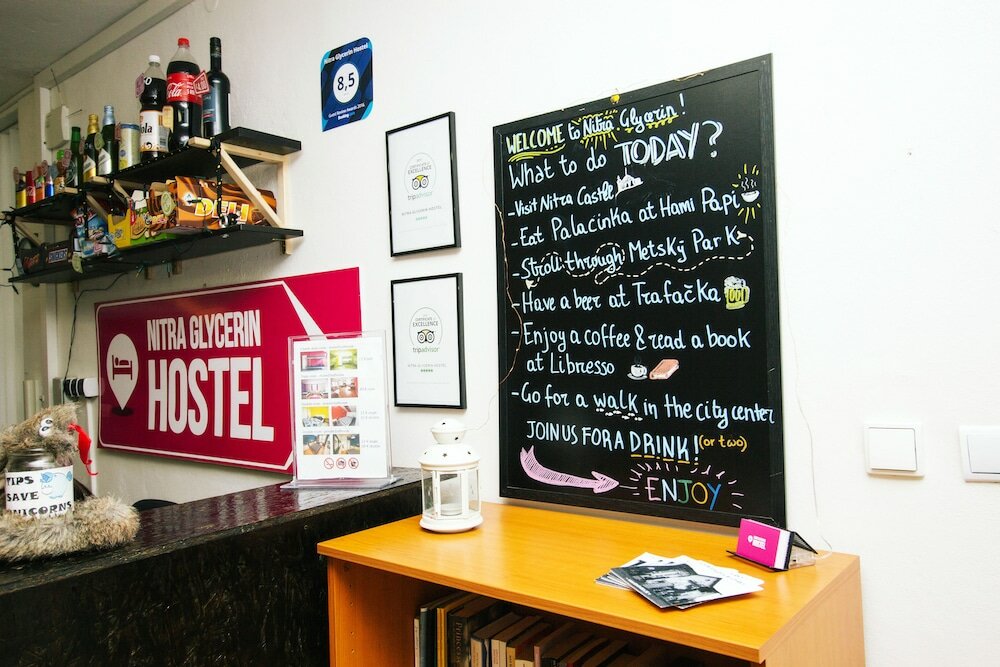 Nitra Glycerin Hostel
8,5
Guest Review Awards 2016
Booking
Cola
Coca-Cola
DELI
CERTIFICATE of
EXCELLENCE
tripadvisor
NITRA GLYCERIN HOSTEL
CERTIFICATE of
EXCELLENCE
tripadvisor
NITRA GLYCERIN HOSTEL
NITRA GLYCERIN
HOSTEL
TIPS
SAVE
UNICORNS
WELCOME to Nitra Glycerin!
What to do TODAY?
-Visit Nitra Castle
-Eat Palacinka at Hami Papi
-Stroll through Metský Park
-Have a beer at Trafačka
-Enjoy a coffee & read a book
at Libresso
-Go for a walk in the city center
JOIN US FOR A DRINK! (or two)
ENJOY
HOSTEL